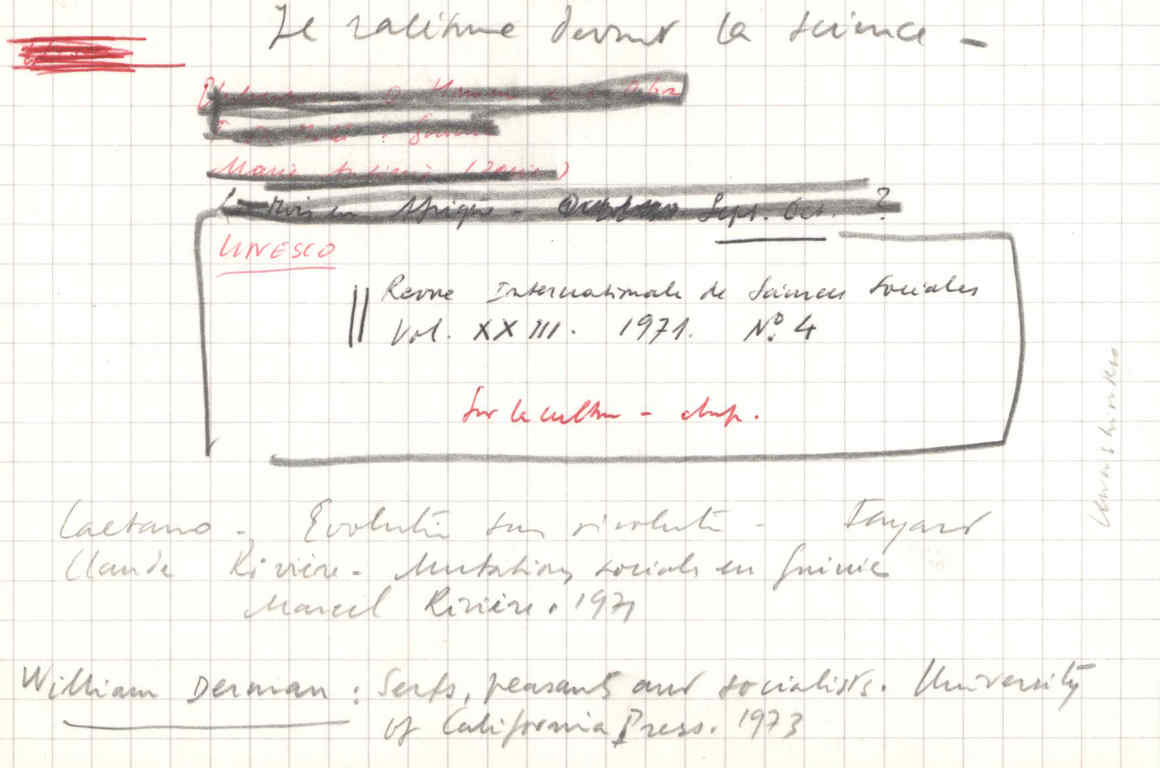 Le racisme devant la science -
Marie
en Afrique - Sept. Oct. ?
UNESCO
Revue Internationale de Sciences Sociales
Vol. XXIII. 1971. Nº 4
Sur la culture - chap.
Caetano - Evolution sans révolution - Fayard
Claude Rivière - Mutations sociales en Guinée
Marcel Rivière. 1971
William Derman : Serfs, peasants and socialists. University
of California Press. 1973